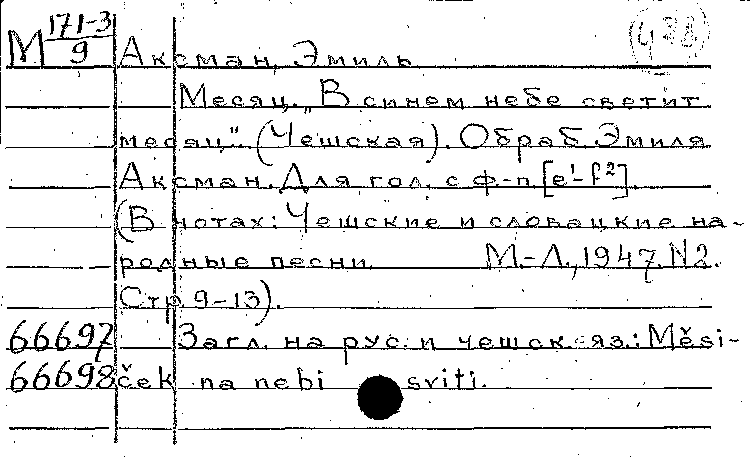 М 171-3/9 Аксман, Эмиль
Месяц. „В синем небе светит
месяц". (Чешская). Обраб. Эмиля
Аксман. Для гол. с ф-п. [e¹-f²].
(В нотах: Чешские и словацкие на-
родные песни. М.-Л., 1947. N2.
Стр. 9-13).
66697 Загл. на рус. и чешск. яз.: Měsi-
66698 ček na nebi sviti.